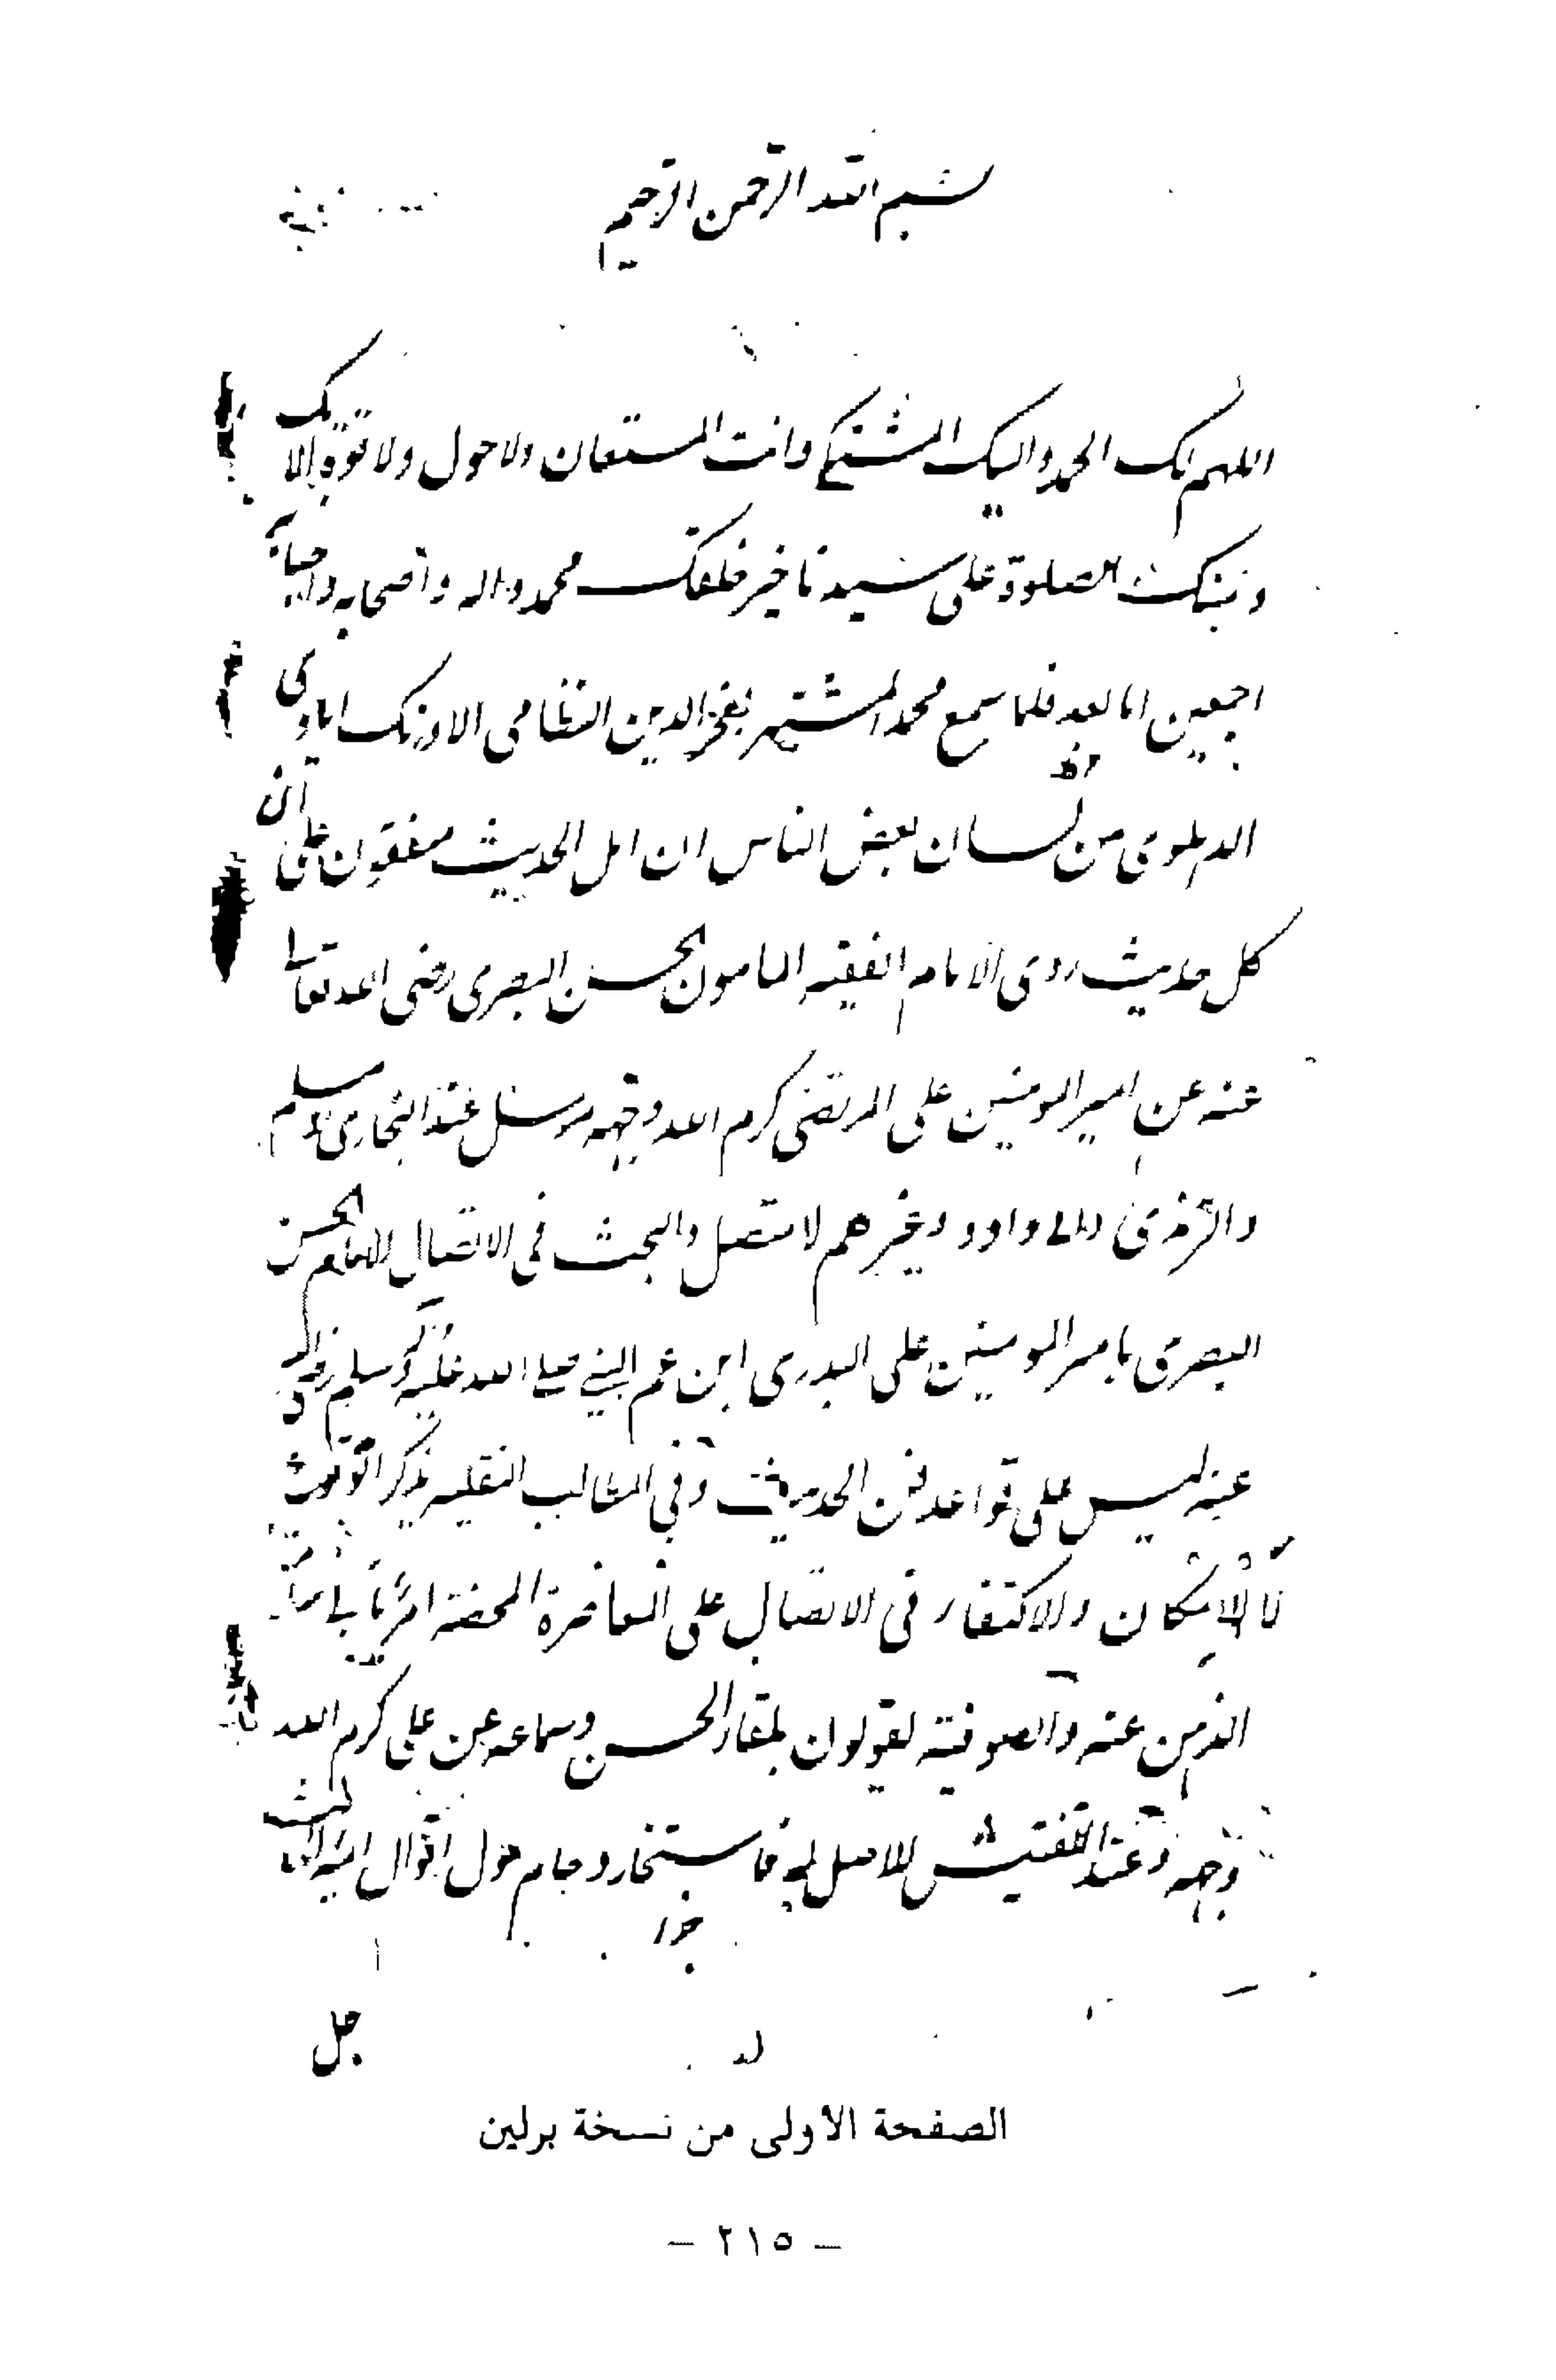 بسم الله الرحمن الرحيم
اللهم لك الحمد واليك المشتكى وانت المستعان ولا حول ولا قوة الا بك
ومنك الصلوة على سيدنا خير خلقك محمد واله واصحابه واحبابه
اجمعين اما بعد فلما سمع محمد المشتهر بفخر الدين النظامى الاورنك ابادى
الدهلوى من لسان بعض الناس ان اهل الحديث متفقون على ان
كل حديث روى الامام الفقيه المامون الحسن البصرى رضى الله تعالى
عنه عن امير المومنين على المرتضى كرم الله وجهه مرسل عند البخارى ومسلم
والترمذى وابى داود وغيرهم لا متصل والبحث فى الاتصال للامام الحسن
البصرى بامير المومنين على البدرى ابن عم النبى صلى الله عليه وسلم رضى الله
عنه ليس على قواعد فن الحديث وفى المطالب النقليه يذكر
الامكان والاكتفاء فى الاتصال على المعاصرة المحضة امر
الذهن عنه والصوفية يقولون بلقاء الحسن وسماعه عن على كرم الله
وجهه وعند التفتيش للاصل له فاستخار وحام حول اقوال ائمة
جل
الصفحة الأولى من نسخة برلين
– ٢١٥ –